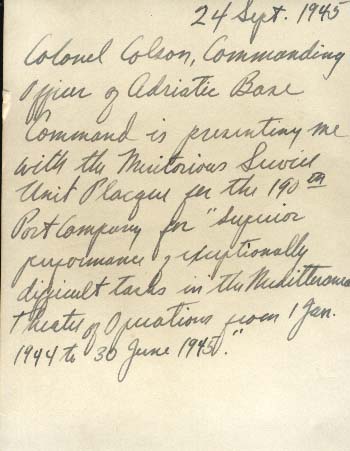 24 Sept. 1945
Colonel Colson, Commanding
Officer of Adriatic Base
Command is presenting me
with the Meritorious Service
Unit Placque for the 190th
Port Company for "Superior
performance of exceptionally
difficult tasks in the Mediterranean
Theater of Operations from 1 Jan.
1944 to 30 June 1945."